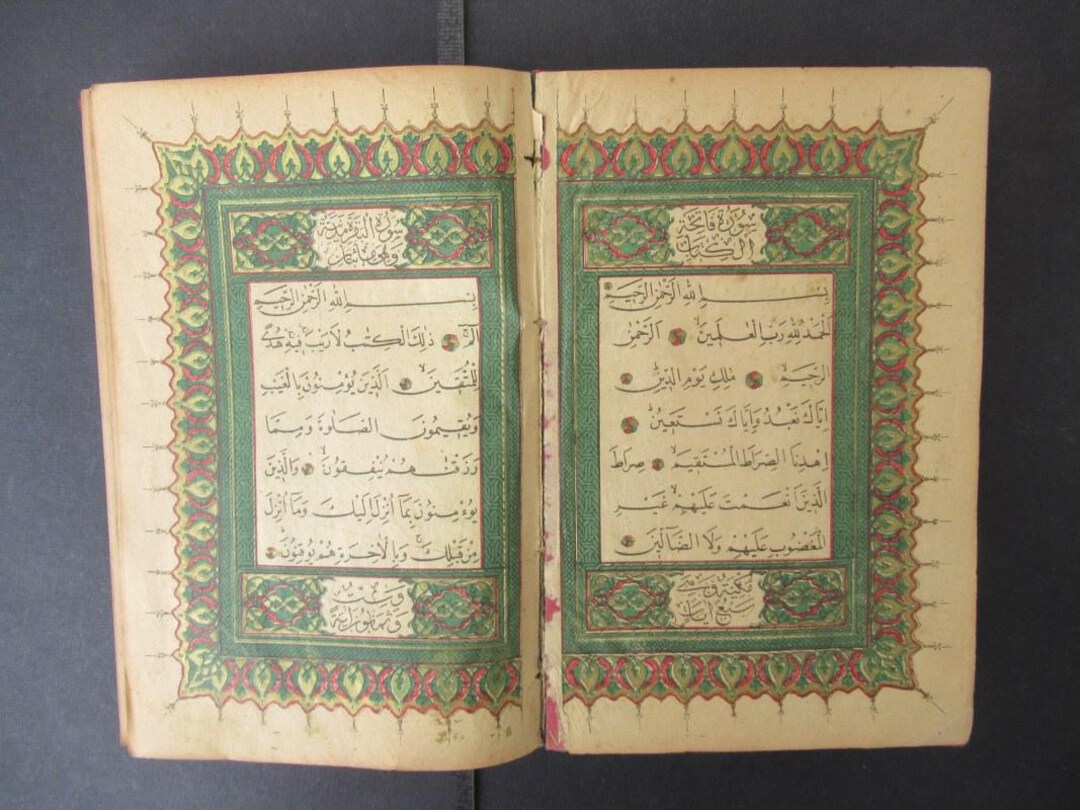 سورة فاتحة
الكتاب
بسم الله الرحمن الرحيم
الحمد لله رب العلمين الرحمن
الرحيم ملك يوم الدين
اياك نعبد واياك نستعين
اهدنا الصراط المستقيم صراط
الذين انعمت عليهم غير
المغضوب عليهم ولا الضالين
مكية وهى
سبع ايات
سورة البقرة مدنية
وهى مائتان
بسم الله الرحمن الرحيم
الم ذلك الكتب لا ريب فيه هدى
للمتقين الذين يؤمنون بالغيب
ويقيمون الصلوة ومما
رزقنهم ينفقون والذين
يؤمنون بما انزل اليك وما انزل
من قبلك وبالاخرة هم يوقنون
وست
وثمانون اية